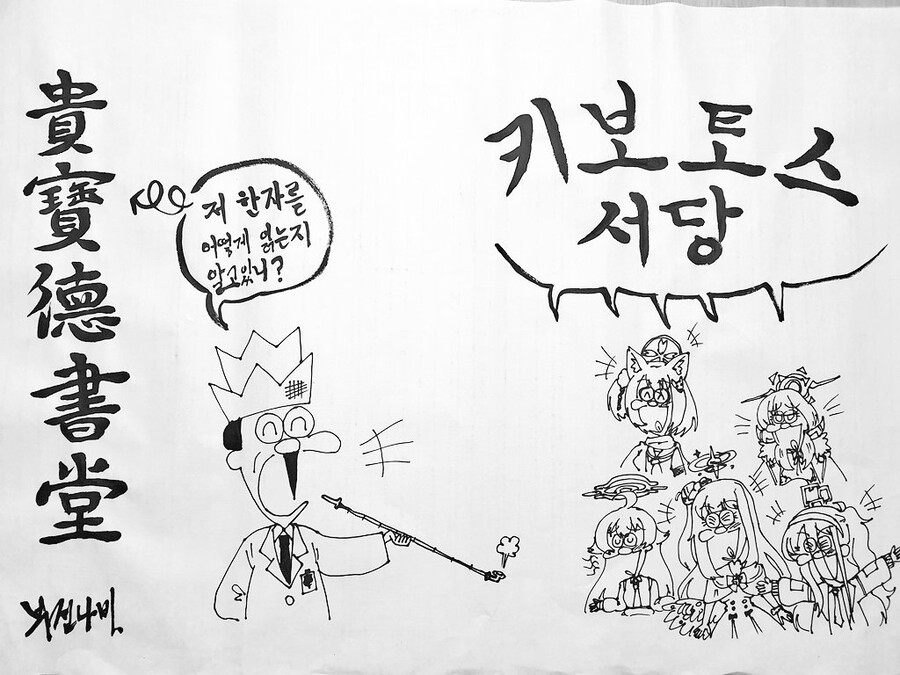 貴寶德書堂
저 한자를
어떻게 읽는지
알고있니?
키보토스
서당